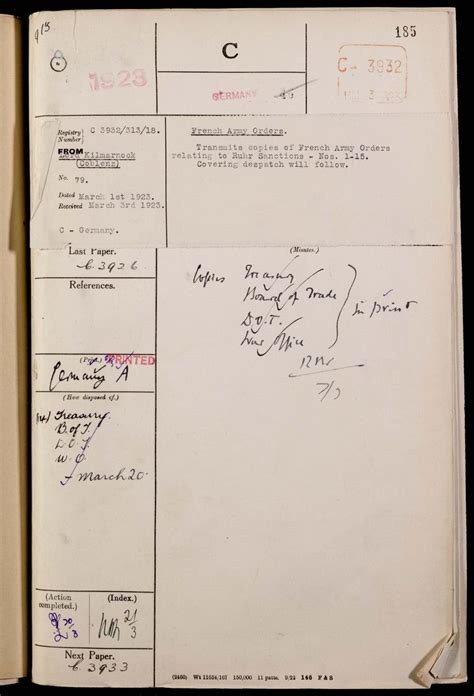 915
185
C
1923
GERMANY
C- 3932
Registry Number
C 3932/313/18.
FROM
Lord Kilmarnock
(Coblenz)
No. 79.
Dated March 1st 1923.
Received March 3rd 1923.
C - Germany.
French Army Orders.
Transmits copies of French Army Orders
relating to Ruhr Sanctions - Nos. 1-15.
Covering despatch will follow.
Last Paper.
C.3926
References.
(Print.)
PRINTED
Germany A
(How disposed of.)
Treasury
B of T.
D.O.T.
W.O.
March 20
(Action
completed.)
(Index.)
21/3
Next Paper.
C.3933
(Minutes.)
Copies Treasury
Board of Trade
D.O.T.
War Office
in print
7/3
(2460) Wt 11654/107 150,000 11 patts. 9/22 146 F & S